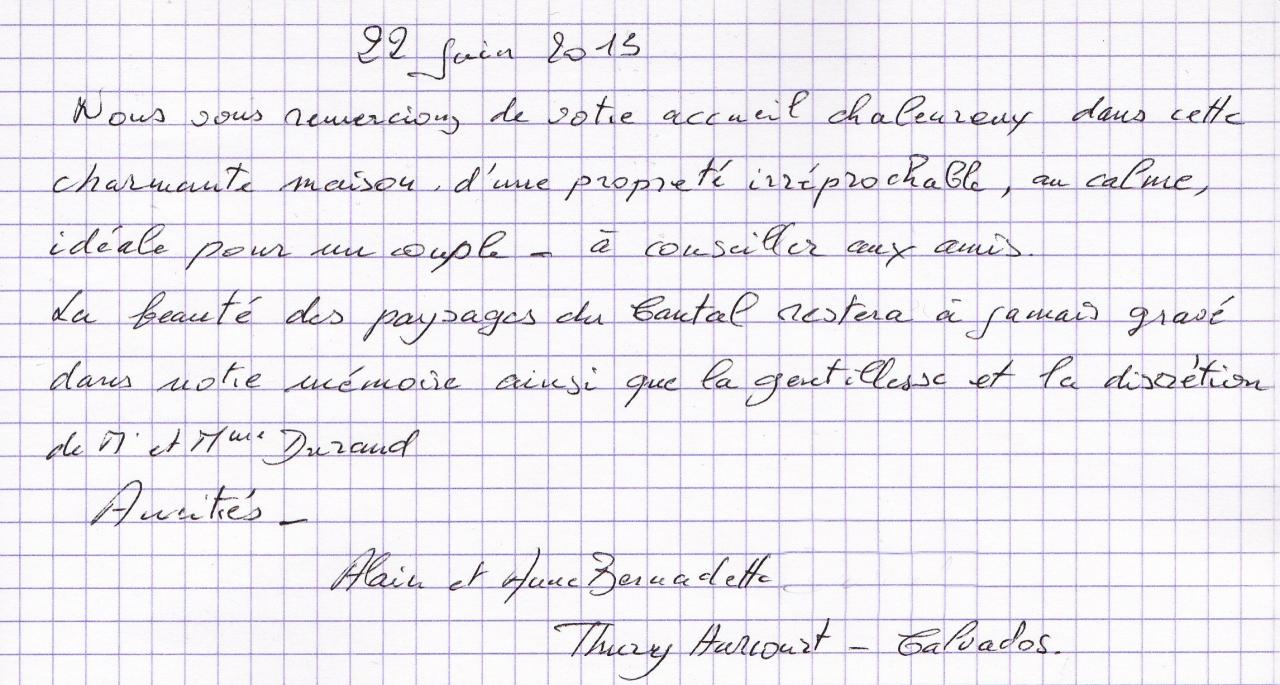 22 Juin 2013
Nous vous remercions de votre accueil chaleureux dans cette
charmante maison, d'une propreté irréprochable, au calme,
idéale pour un couple - à conseiller aux amis.
La beauté des paysages du Cantal restera à jamais gravé
dans notre mémoire ainsi que la gentillesse et la discrétion
de Mr et Mme Durand
Amitiés -
Alain et Anne Bernadette
Thury Harcourt - Calvados.